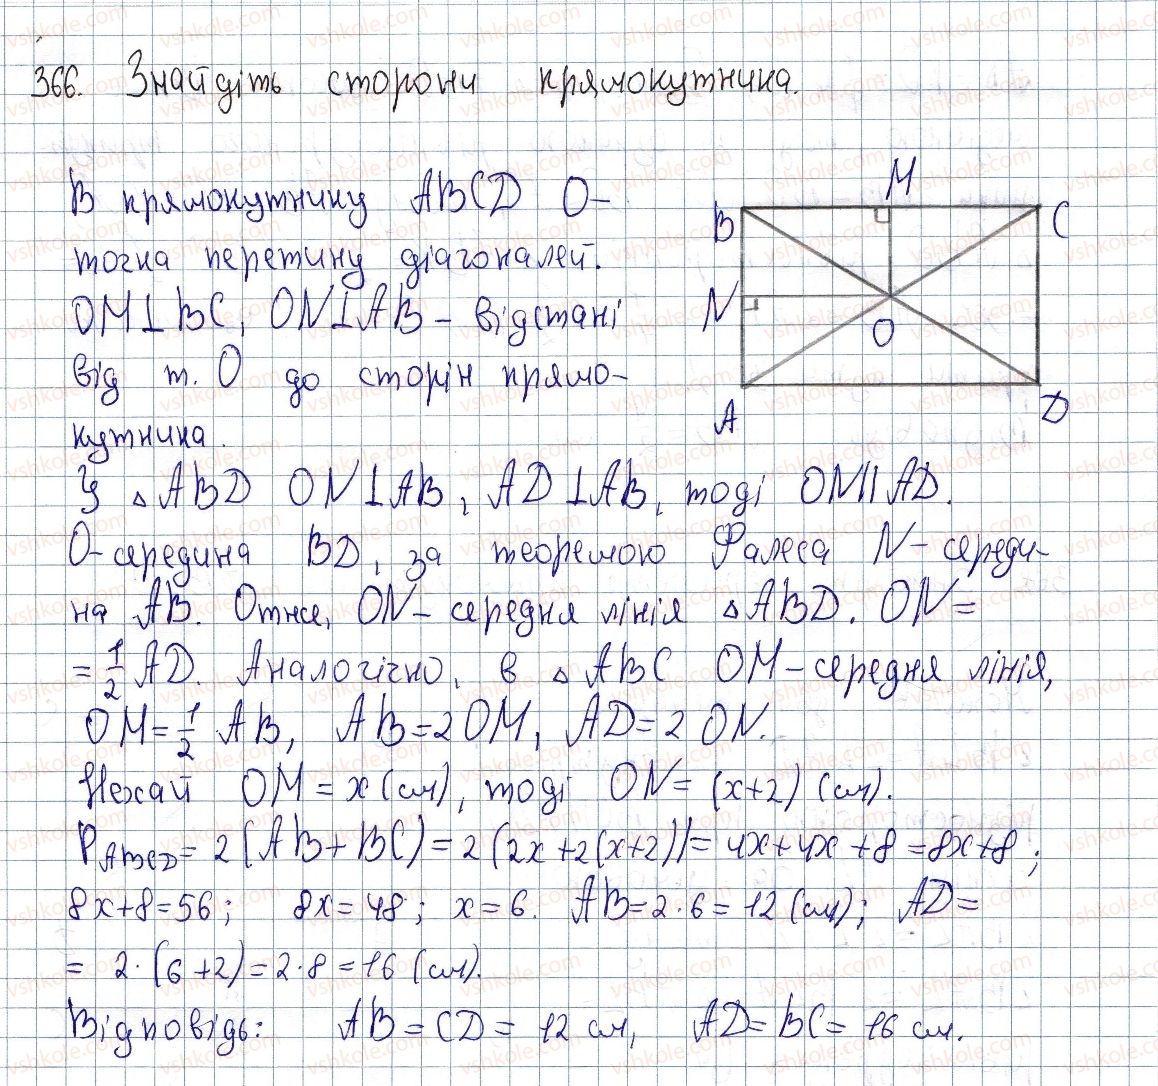 366. Знайдіть сторони прямокутника.
В прямокутнику ABCD O-
точка перетину діагоналей.
OM⊥BC, ON⊥AB - відстані
від т. O до сторін прямо-
кутника.
M
B
C
N
O
A
D
У △ABD ON⊥AB, AD⊥AB, тоді ON||AD.
O-середина BD, за теоремою Фалеса N-середи-
на AB. Отже, ON- середня лінія △ABD. ON=
=1/2 AD. Аналогічно, в △ABC OM-середня лінія,
OM=1/2 AB, AB=2OM, AD=2 ON.
Нехай OM=x(см), тоді ON=(x+2) (см).
P_ABCD=2(AB+BC)=2(2x+2(x+2))=4x+4x+8=8x+8;
8x+8=56; 8x=48; x=6. AB=2·6=12(см); AD=
= 2·(6+2)=2·8=16 (см).
Відповідь: AB=CD=12 см, AD=BC=16 см.